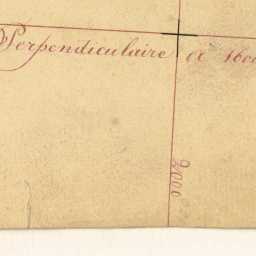 Perpendiculaire a 160
2000